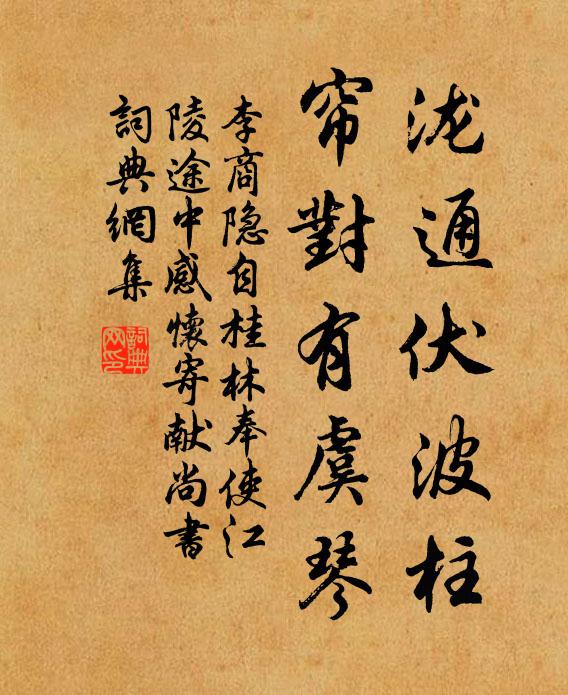 泷通伏波柱
帘對有虞琴
李商隐自桂林奉使江
陵途中感懷寄献尚書
詞典網集
詞典网印